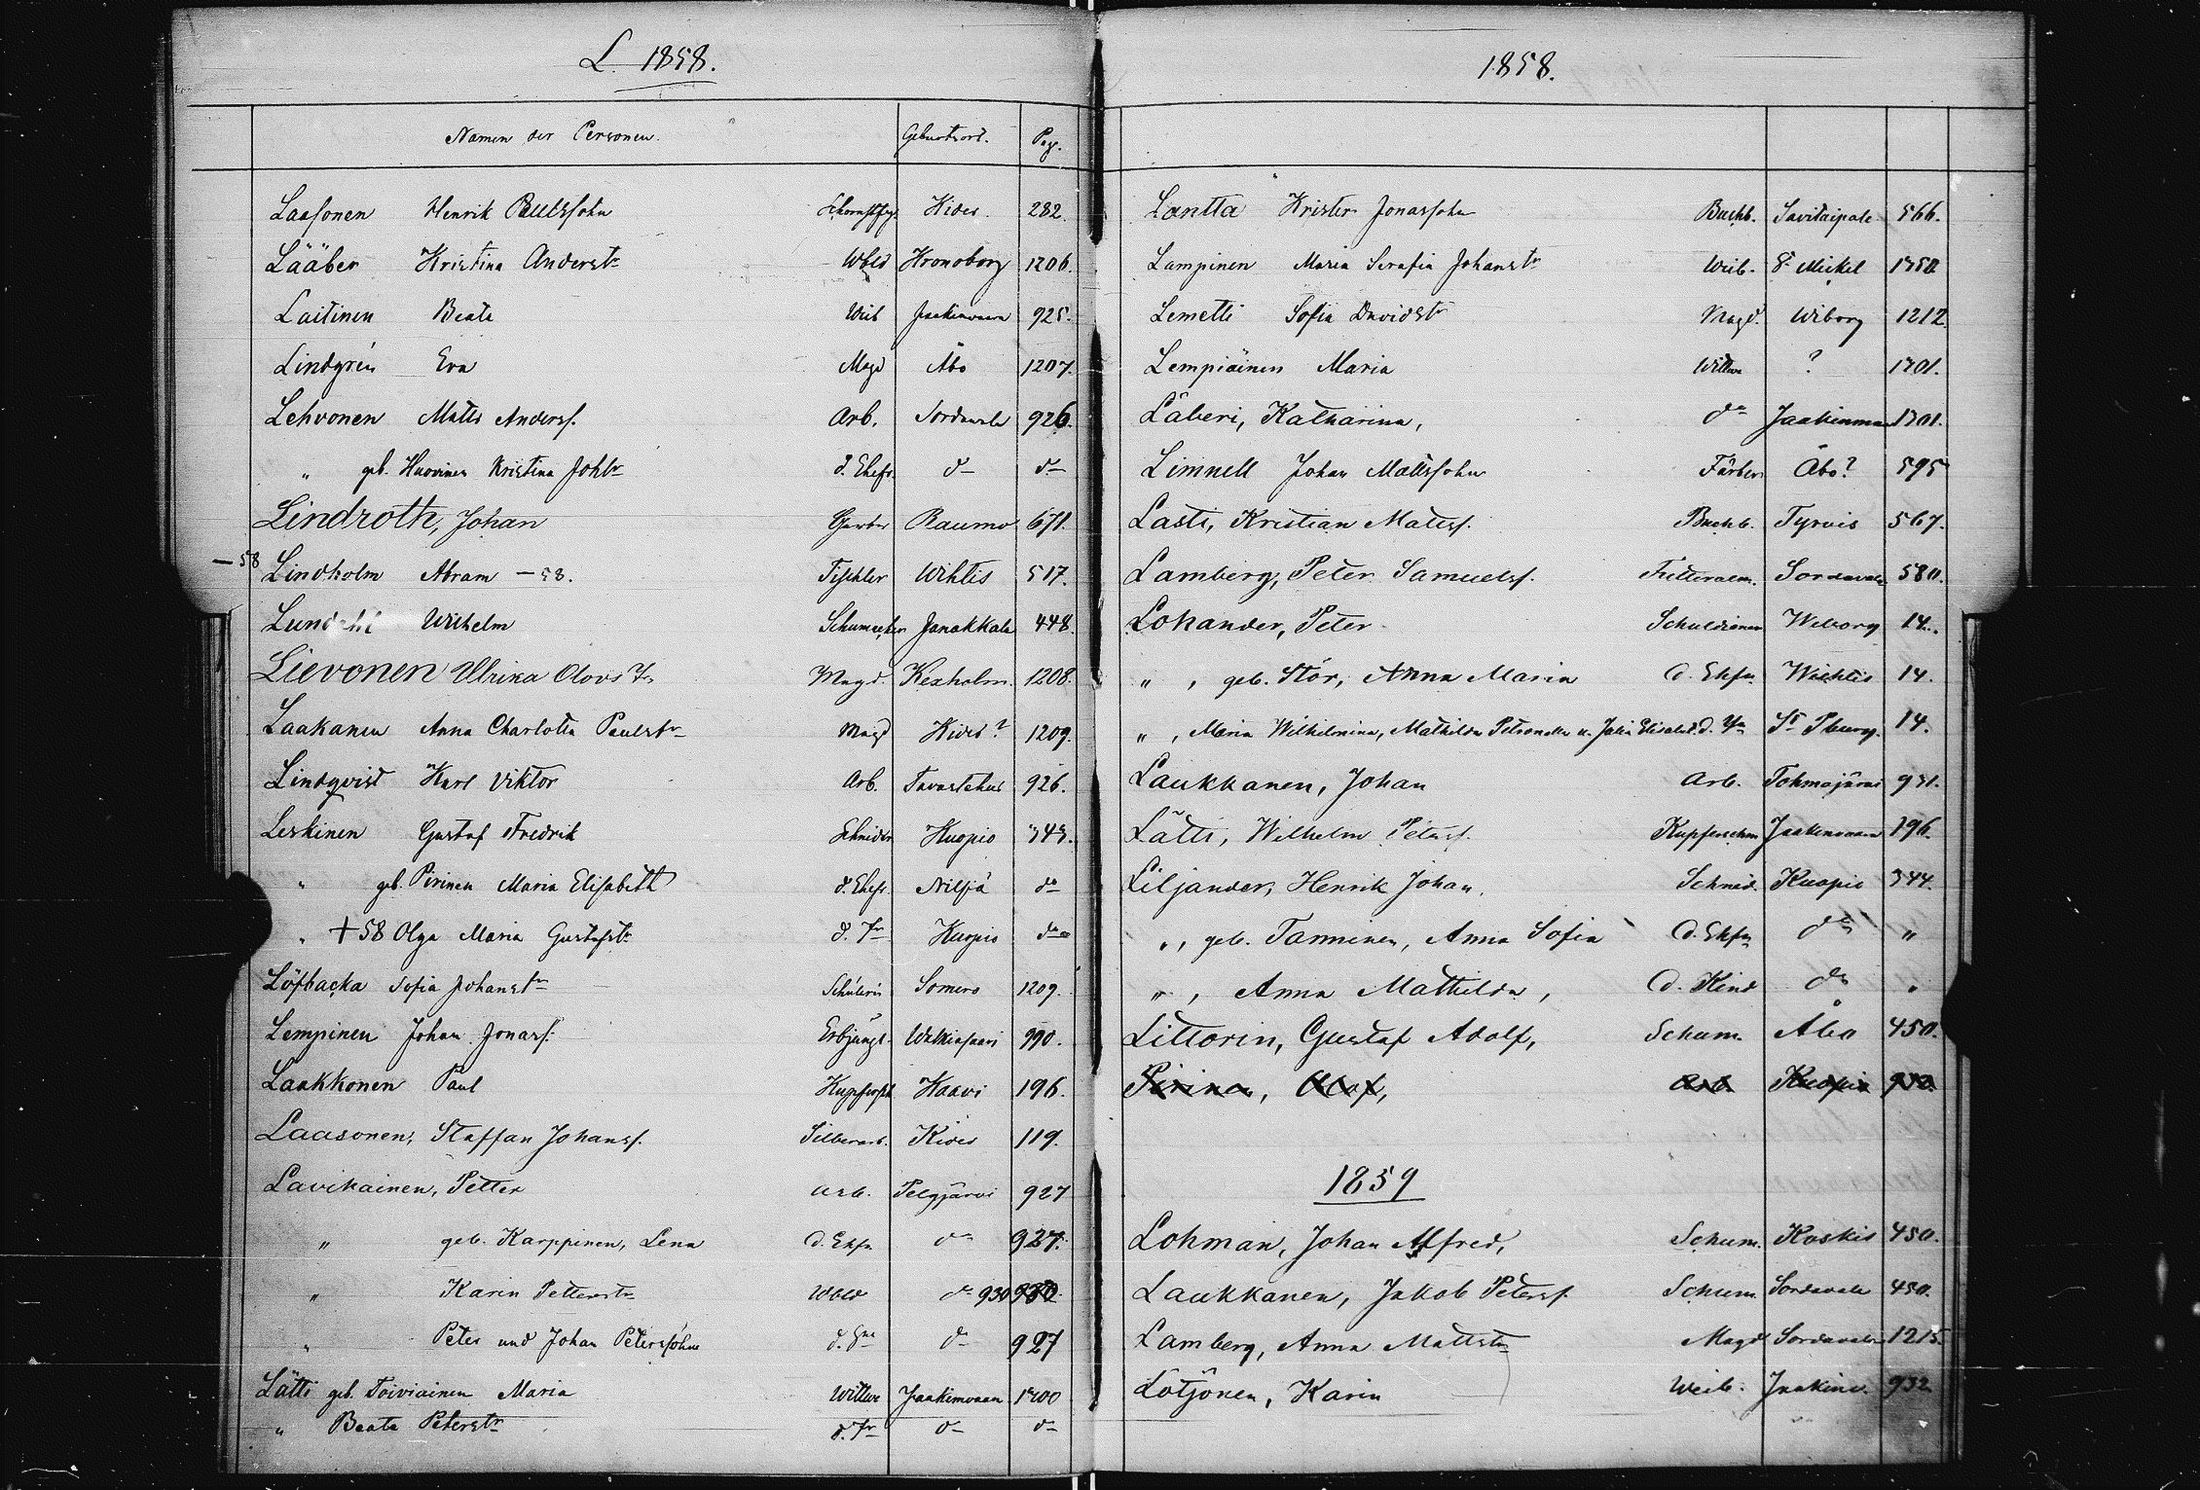 L. 1858.
Namen der Personen. Geburtsort. Pag.
Laasonen Henrik Paulssohn Schornstfgr Kides. 282.
Lääber Kristina Anderstr Wbld Kronoborg 1206.
Laitinen Beata Weib Jaakimvaara 925.
Lindgrén Eva Magd Åbo 1207.
Lehvonen Matts Andersf. Arb. Sordavala 926.
" geb. Huovinen Kristina Johtr d. Ehefr. do do
Lindroth, Johan Gerber Raumo 671.
—58 Lindholm Abram —58. Tischler Wihtis 517.
Lundahl Wilhelm Schumacher Janakkala 448.
Lievonen Ulrika Olovs Tr Magd. Kexholm. 1208.
Laakanen Anna Charlotta Paulstr Magd Kides? 1209.
Lindqvist Karl Viktor Arb. Tavastehus 926.
Leskinen Gustaf Fredrik Schneider Kuopio 343.
" geb. Pirinen Maria Elisabeth d. Ehefr. Nilsjä do
" +58 Olga Maria Gustafstr d. Tr Kuopio do
Löfbacka Sofia Johanstr Schülerin Somero 1209.
Lempinen Johan Jonasf. Erbjungs. Walkiasaari 990.
Laakkonen Paul Kupfersch Kaavi 196.
Laasonen, Staffan Johansf. Silberarb. Kides 119.
Lavikainen, Petter Arb. Pelgjärvi 927
" geb. Karppinen, Lena d. Ehfr. do 927.
" Karin Petterstr Wbld do 930
" Peter und Johan Peterssöhne d. Sne do 927
Lätti geb. Toiviainen Maria Wittwe Jaakimvaara 1700
" Beata Peterstr d. Tr do do
1858.
Lantta Krister Jonassohn Buchb. Savitaipale 566.
Lampinen Maria Serafia Johanstr Weib. St Mickel 1750.
Lemetti Sofia Davidstr Magd. Wiborg 1212.
Lempiäinen Maria Wittwe ? 1701.
Läberi, Katharina, do Jaakimvaa 1701.
Limnell Johan Mattssohn Färber Åbo? 595
Lasti, Kristian Matssf. Buchb. Tyrvis 567.
Lamberg, Peter Samuelsf. Futteralm. Sordavala 580.
Lohander, Peter Schuldiener Wiborg 14.
" , geb. Stör, Anna Maria d. Ehfr Wichtis 14.
" , Maria Wilhelmina, Mathilda Petronella u. Julia Elisabet d. Tr St Pburg. 14.
Laukkanen, Johan Arb. Tohmajärvi 931.
Lätti, Wilhelm Petersf. Kupferschm Jaakimvaara 196.
Liljander, Henrik Johan. Schneid. Kuopio 344.
" , geb. Tanninen, Anna Sofia d. Ehfr do "
" , Anna Mathilda, d. Kind do "
Littorin, Gustaf Adolf, Schum. Åbo 450.
Pirinen, Olof, Arb. Kuopio
1859
Lohman, Johan Alfred, Schum. Koskis 450.
Laukkanen, Jakob Petersf. Schum Sordavala 450.
Lamberg, Anna Mattstr Magd Sordavala 1215.
Lötjönen, Karin Weib. Jaakimv. 932